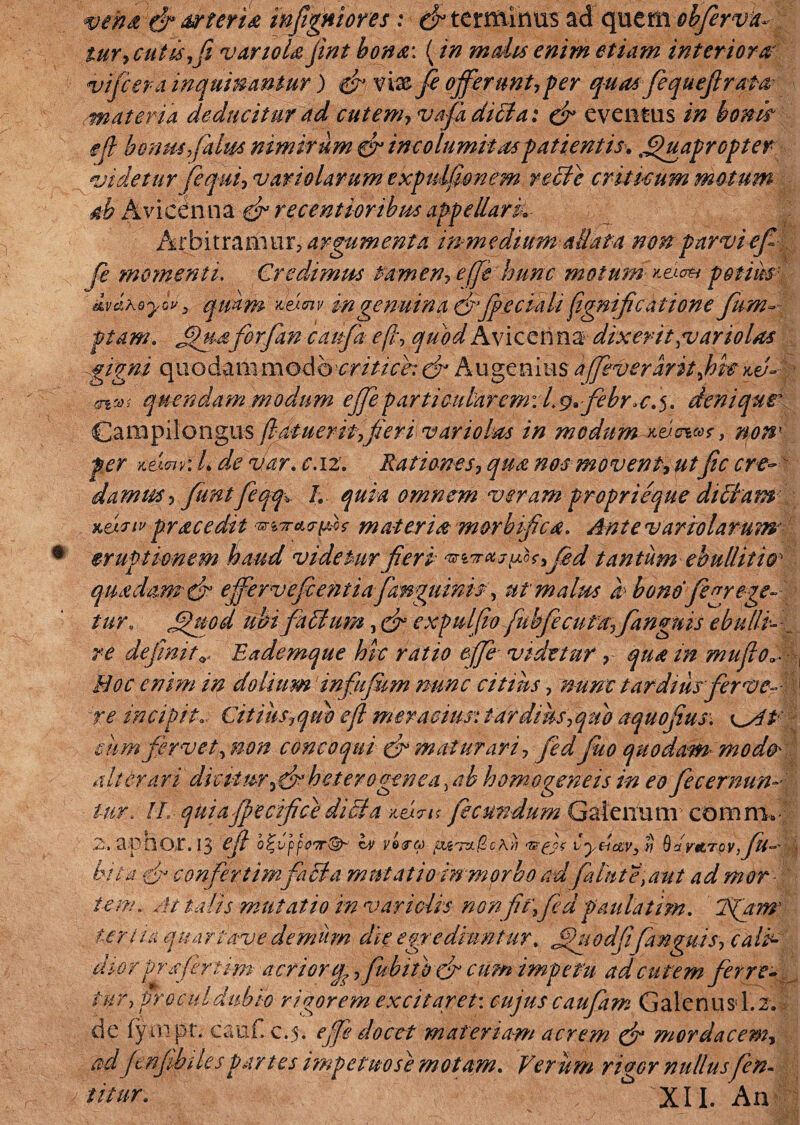 venæ & arteriæ insigniores: & terminus ad quem observa-
tur, cutis, si variolæ sint bonæ: (in malis enim etiam interiora
viscera inquinantur) & viæ se offerunt, per quas sequestrata
materia deducitur ad cutem, vasa dicta: & eventus in bonis
est bonus, salus nimirùm & incolumitas patientis. Quapropter
videtur sequi, variolarum expulsionem rectè criticum motum
ab Avicenna & recentioribus appellari.
Arbitramur, argumenta in medium allata non parvi es-
se momenti. Credimus tamen, esse hunc motum κρίσει potiùs
ἀνάλογον, quàm κρίσιν in genuina & speciali significatione sum-
ptam. Quæ forsan causa est, quòd Avicenna dixerit, variolas
gigni quodammodò criticè: & Augenius asseverârit, hîc κρί-
σιν quendam modum esse particularem: l. 9. febr. c. 5. denique
Campilongus statuerit, fieri variolas in modum κρίσεως, non
per κρίσιν: l. de var. c. 12. Rationes, quæ nos movent, ut sic cre-
damus, sunt seqq. I. quia omnem veram propriéque dictam
κρίσιν præcedit πεπασμὸς materiæ morbificæ. Ante variolarum
eruptionem haud videtur fieri πεπασμὸς, sed tantùm ebullitio
quædam & effervescentia sanguinis, ut malus à bono segrege-
tur. Quod ubi factum, & expulsio subsecuta, sanguis ebulli-
re definit. Eademque hîc ratio esse videtur, quæ in musto.
Hoc enim in dolium infusum nunc citiùs, nunc tardiùs ferve-
re incipit. Citiùs, quò est meracius: tardiùs, quò aquosius. At
cùm fervet, non concoqui & maturari, sed suo quodam modo
alterari dicitur, & heterogenea, ab homogeneis in eo secernun-
tur. II. quia specificè dicta κρίσις secundum Galenum comm.
2. aphor. 13 est ὀξύῤῥοπος ἐν νόσῳ μεταβολὴ πρὸς ὑγείαν, ἢ θάνατον, su-
bita & confertim facta mutatio in morbo ad salutē, aut ad mor-
tem. At talis mutatio in variolis non fit, sed paulatim. Nam
tertia quartave demùm die egrediuntur. Quod si sanguis, cali-
dior præsertim acriorq́;, subitò & cum impetu ad cutem ferre-
tur, procul dubio rigorem excitaret: cujus causam Galenus l. 2.
de sympt. caus. c. 5. esse docet materiam acrem & mordacem,
ad sensibiles partes impetuosè motam. Verùm rigor nullus sen-
titur. XII. An